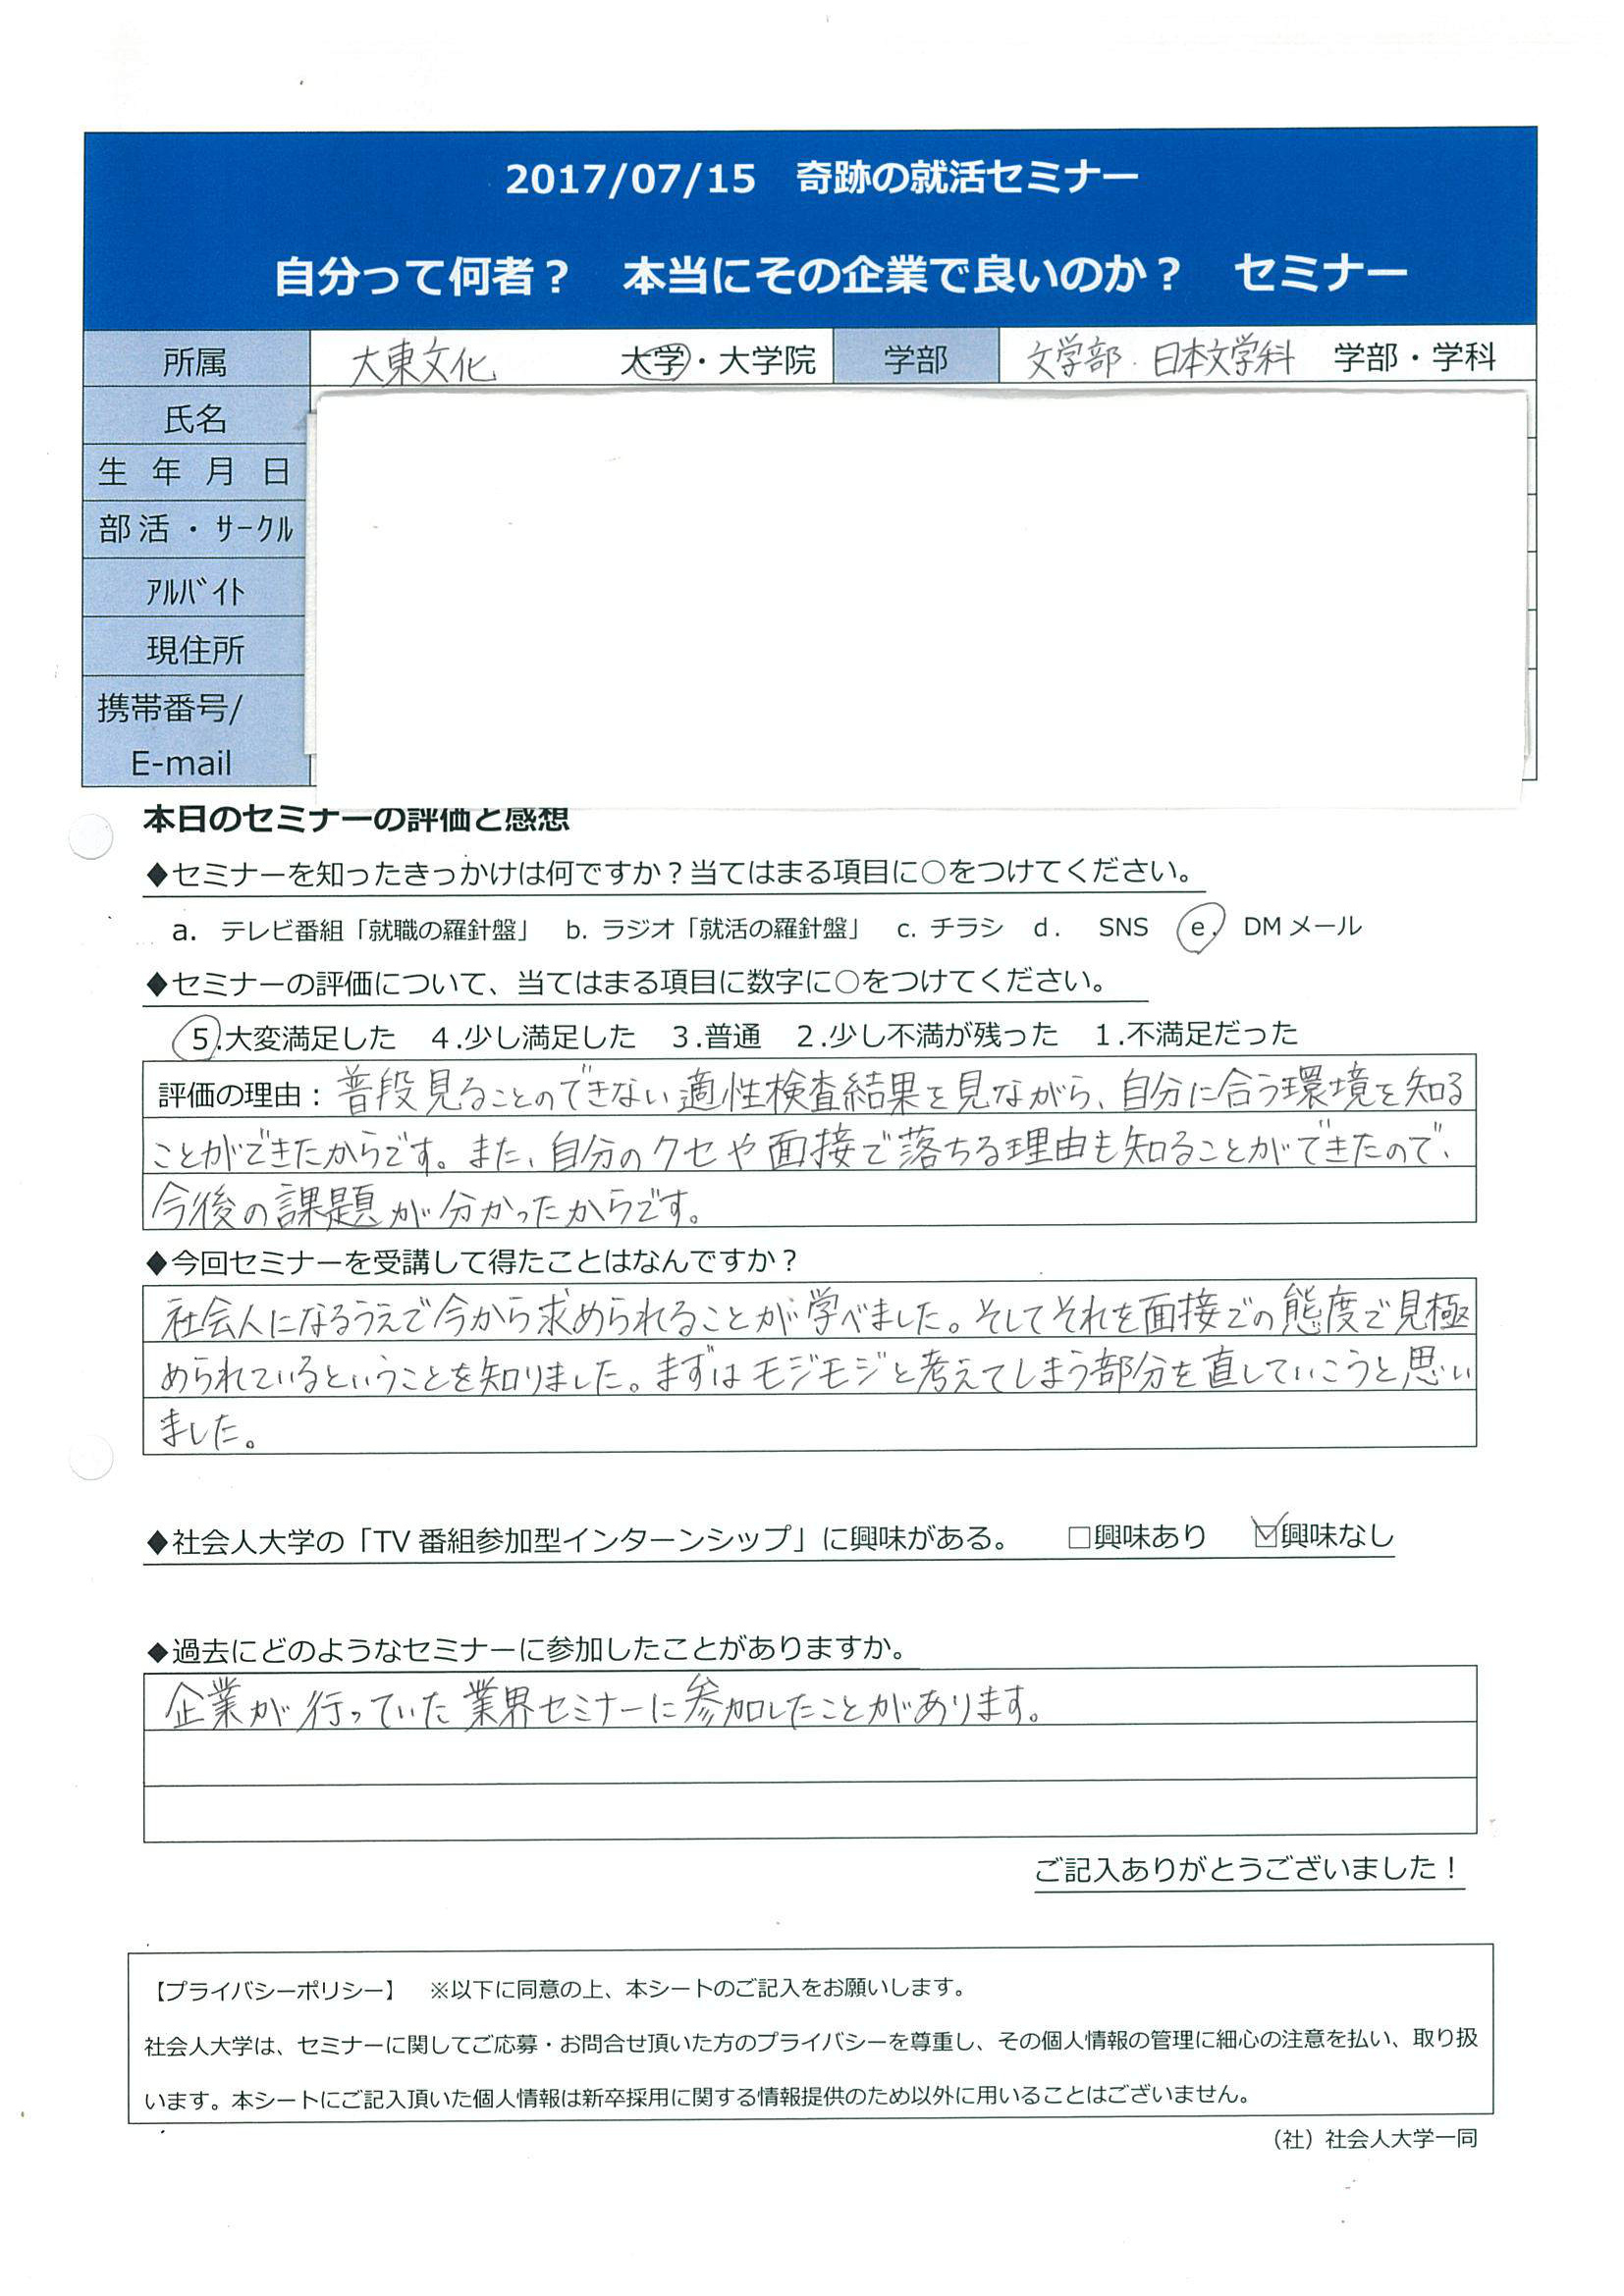 2017/07/15　奇跡の就活セミナー
自分って何者？　本当にその企業で良いのか？　セミナー
所属　大東文化　大学・大学院　学部　文学部・日本文学科　学部・学科
氏名
生年月日
部活・ｻｰｸﾙ
ｱﾙﾊﾞｲﾄ
現住所
携帯番号/
E-mail
本日のセミナーの評価と感想
◆セミナーを知ったきっかけは何ですか？当てはまる項目に○をつけてください。
a. テレビ番組「就職の羅針盤」　b. ラジオ「就活の羅針盤」　c. チラシ　d.　SNS　e.　DMメール
◆セミナーの評価について、当てはまる項目に数字に○をつけてください。
5.大変満足した　4.少し満足した　3.普通　2.少し不満が残った　1.不満足だった
評価の理由：普段見ることのできない適性検査結果を見ながら、自分に合う環境を知る
ことができたからです。また、自分のクセや面接で落ちる理由も知ることができたので、
今後の課題が分かったからです。
◆今回セミナーを受講して得たことはなんですか？
社会人になるうえで今から求められることが学べました。そしてそれを面接での態度で見極
められているということを知りました。まずはモジモジと考えてしまう部分を直していこうと思い
ました。
◆社会人大学の「TV番組参加型インターンシップ」に興味がある。　□興味あり　☑興味なし
◆過去にどのようなセミナーに参加したことがありますか。
企業が行っていた業界セミナーに参加したことがあります。
ご記入ありがとうございました！
【プライバシーポリシー】　※以下に同意の上、本シートのご記入をお願いします。
社会人大学は、セミナーに関してご応募・お問合せ頂いた方のプライバシーを尊重し、その個人情報の管理に細心の注意を払い、取り扱
います。本シートにご記入頂いた個人情報は新卒採用に関する情報提供のため以外に用いることはございません。
（社）社会人大学一同